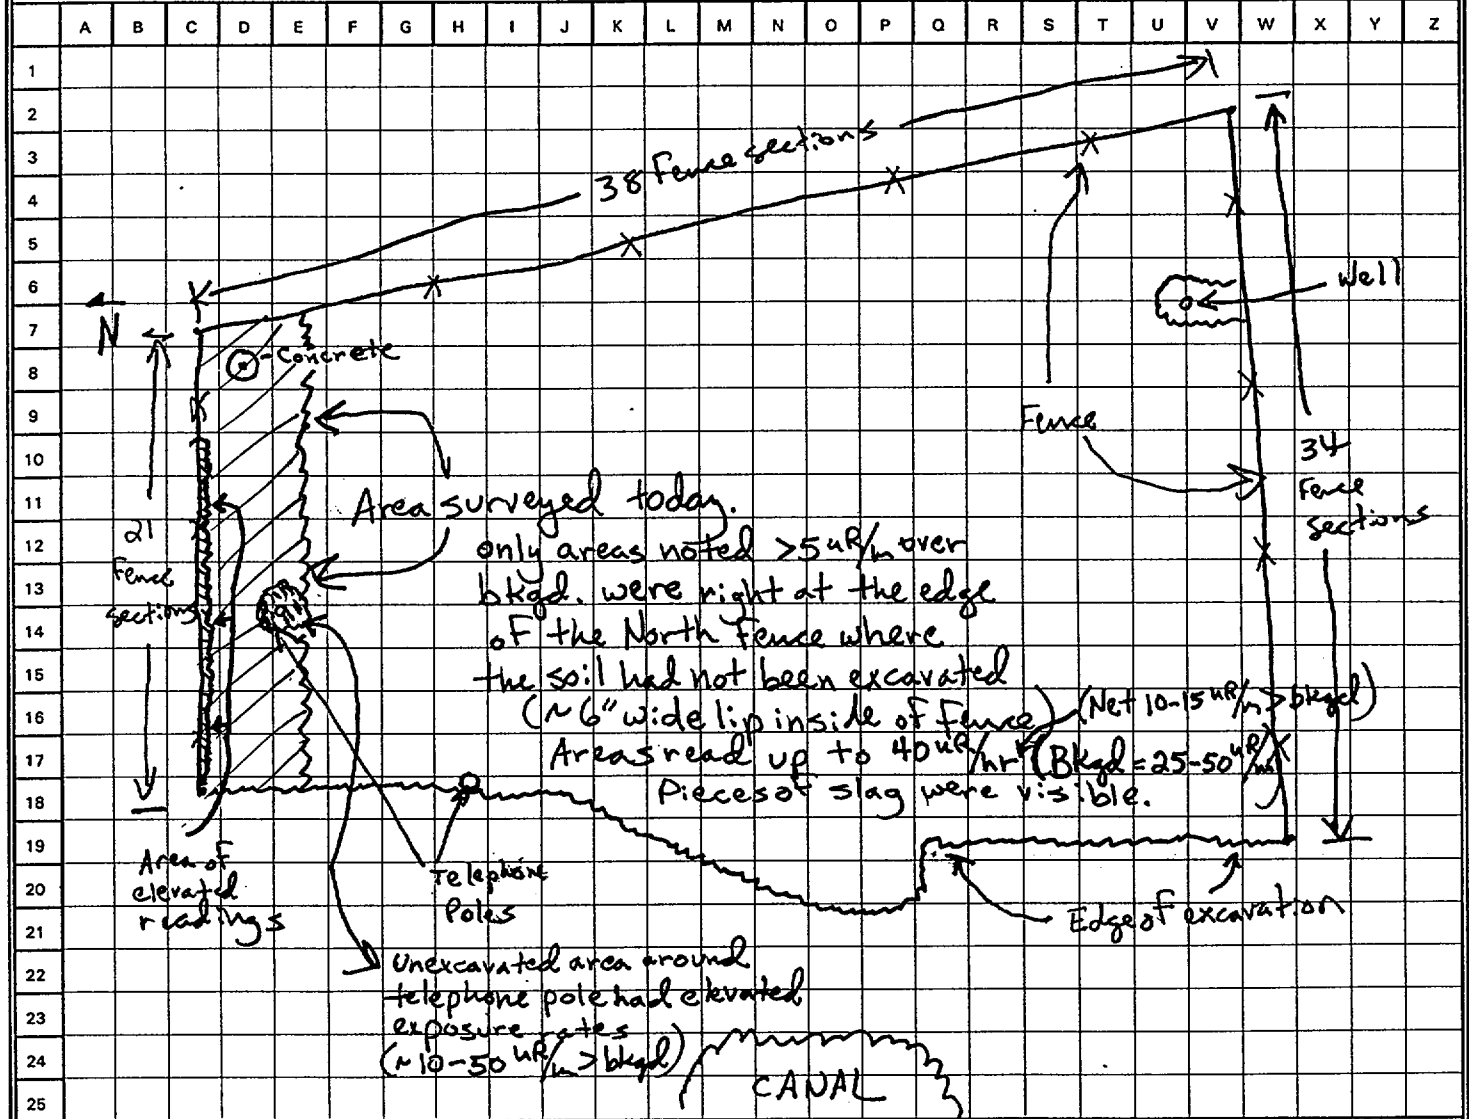 A B C D E F G H I J K L M N O P Q R S T U V W X Y Z
1
2
3
4
5
6
7
8
9
10
11
12
13
14
15
16
17
18
19
20
21
22
23
24
25
38 Fence sections
N
Well
Concrete
Fence
34
Fence
sections
21
Fence
sections
Area surveyed today.
only areas noted >5 uR/h over
bkgd. were right at the edge
of the North Fence where
the soil had not been excavated
(~6" wide lip inside of fence)
Areas read up to 40 uR/hr
(Net 10-15 uR/h > bkgd)
(Bkgd = 25-50 uR/h)
Pieces of slag were visible.
Area of
elevated
readings
Telephone
Poles
Edge of excavation
Unexcavated area around
telephone pole had elevated
exposure rates
(~10-50 uR/h > bkgd)
CANAL